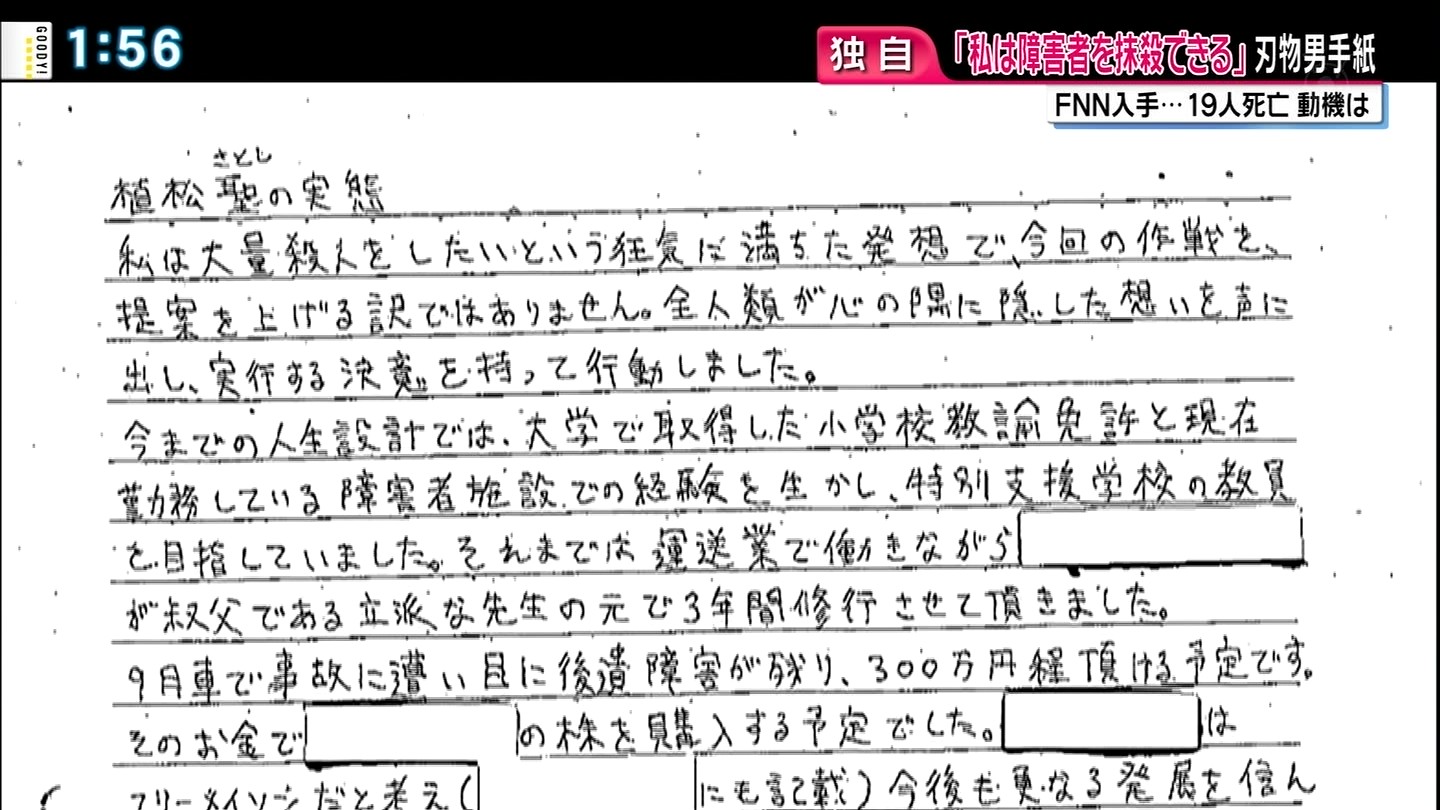 GOODY!
1:56
独自
「私は障害者を抹殺できる」刃物男手紙
FNN入手…19人死亡 動機は
さとし
植松聖の実態
私は大量殺人をしたいという狂気に満ちた発想で、今回の作戦を、
提案を上げる訳ではありません。全人類が心の隅に隠した想いを声に
出し、実行する決意を持って行動しました。
今までの人生設計では、大学で取得した小学校教諭免許と現在
勤務している障害者施設での経験を生かし、特別支援学校の教員
を目指していました。それまでは運送業で働きながら
が叔父である立派な先生の元で3年間修行させて頂きました。
9月車で事故に遭い目に後遺障害が残り、300万円程頂ける予定です。
そのお金で の株を購入する予定でした。 は
フリーメイソンだと考え( にも記載)今後も更なる発展を信ん